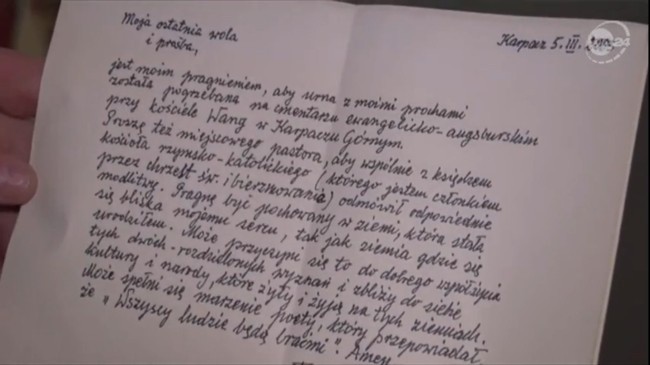 Moja ostatnia wola
i prośba,
Karpacz 5.III.
jest moim pragnieniem, aby urna z moimi prochami
została pogrzebana na cmentarzu ewangelicko-augsburskim
przy kościele Wang w Karpaczu Górnym.
Proszę też miejscowego pastora, aby wspólnie z księdzem
kościoła rzymsko-katolickiego (którego jestem członkiem
przez chrzest św. i bierzmowanie) odmówił odpowiednie
modlitwy. Pragnę być pochowany w ziemi, która stała
się bliska mojemu sercu, tak jak ziemia gdzie się
urodziłem. Może przyczyni się to do dobrego współżycia
tych dwóch-rozdzielonych wyznań i zbliży do siebie
kultury i narody, które żyły i żyją na tych ziemiach.
Może spełni się marzenie poety, który przepowiadał,
że "Wszyscy ludzie będą braćmi". Amen